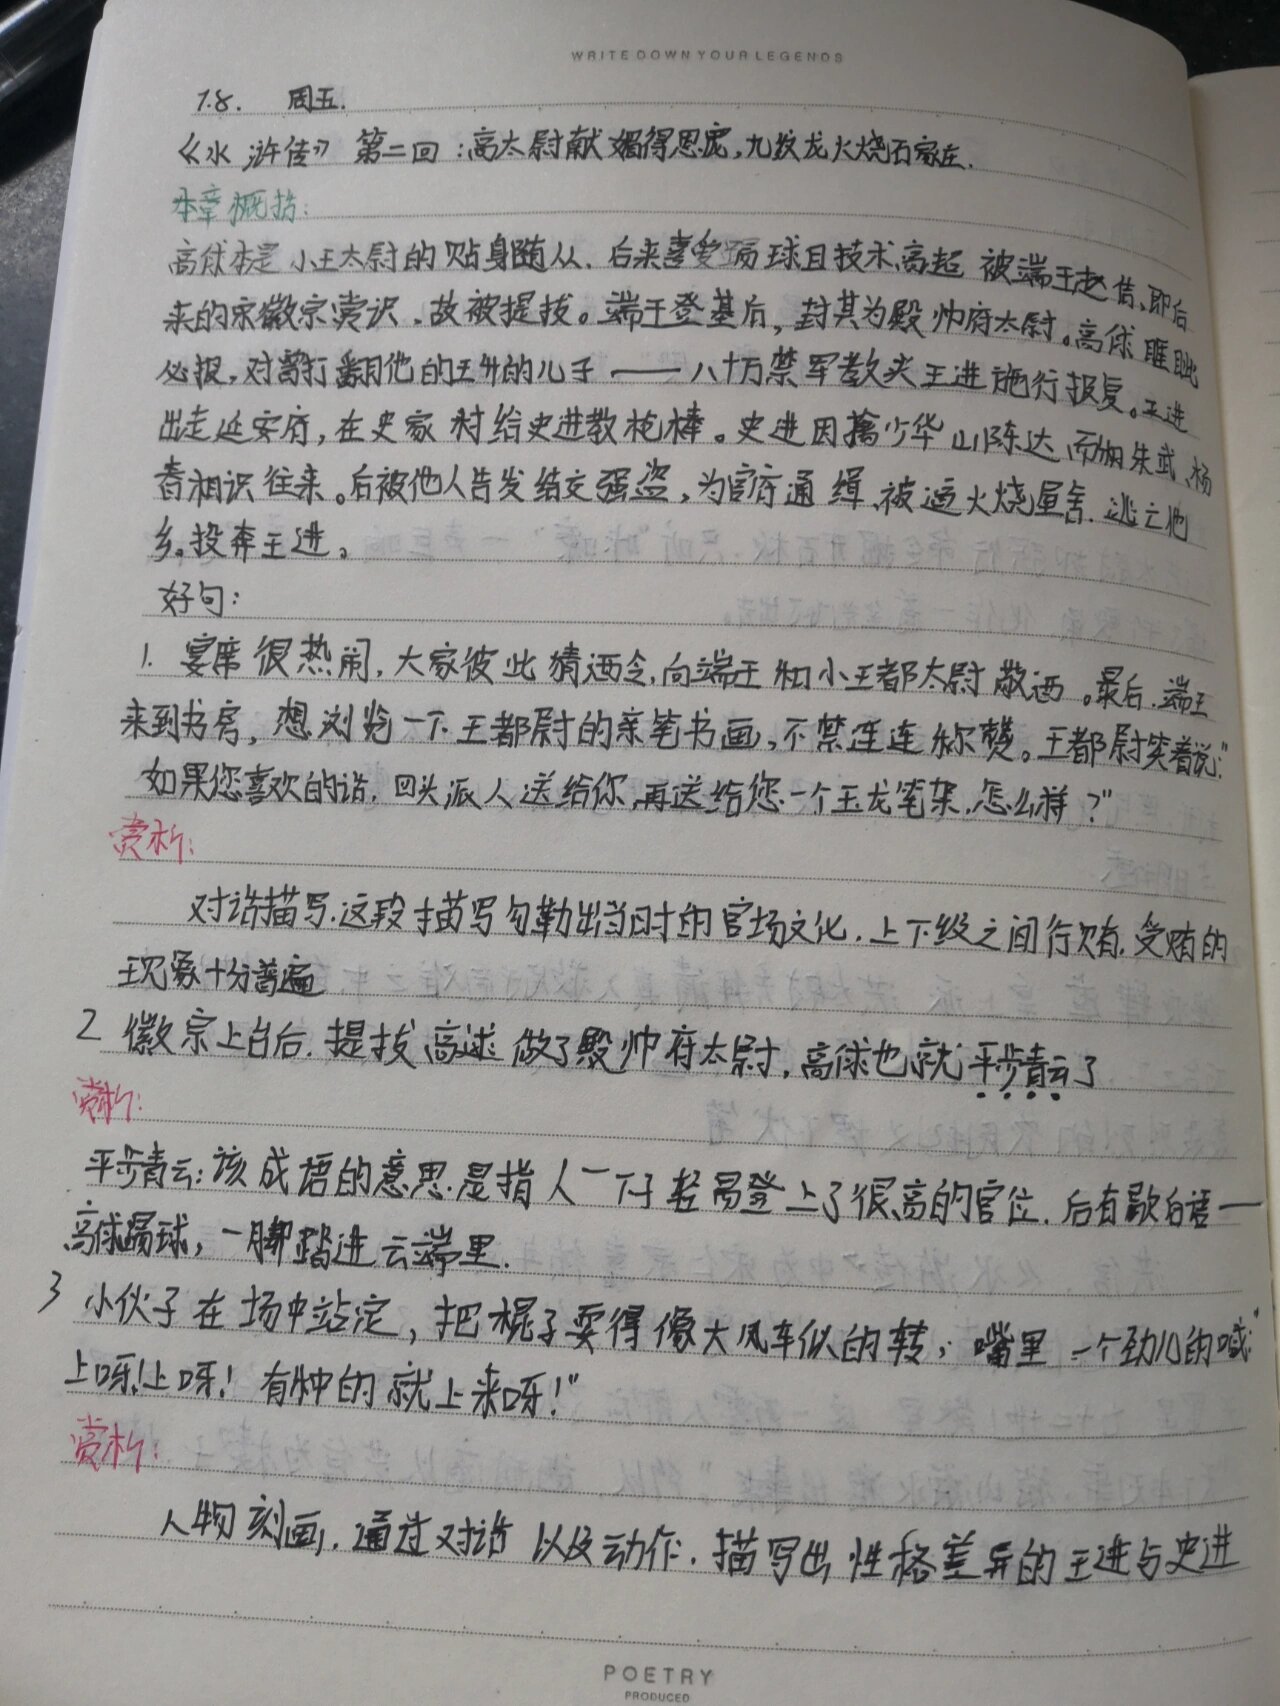 WRITE DOWN YOUR LEGENDS
1.8. 周五.
《水浒传》 第二回:高太尉献媚得恩宠,九纹龙火烧石家庄.
本章概括:
高俅本是小王太尉的贴身随从.后来喜爱踢球且技术高超 被端王赵佶,即后
来的宋徽宗赏识.故被提拔。端王登基后,封其为殿帅府太尉。高俅睚眦
必报,对曾打翻他的王升的儿子——八十万禁军教头王进施行报复。王进
出走延安府,在史家村给史进教枪棒。史进因擒少华山陈达而和朱武、杨
春相识往来。后被他人告发结交强盗,为官府通缉,被逼火烧屋舍.逃亡他
乡。投奔王进。
好句:
1. 宴席很热闹,大家彼此猜酒令,向端王和小王都太尉敬酒。最后.端王
来到书房,想浏览一下王都尉的亲笔书画,不禁连连称赞。王都尉笑着说:"
如果您喜欢的话,回头派人送给你,再送给您一个玉龙笔架,怎么样?"
赏析:
对话描写.这段描写勾勒出当时的官场文化,上下级之间行贿.受贿的
现象十分普遍
2 徽宗上台后.提拔高逑做了殿帅府太尉,高俅也就平步青云了
赏析:
平步青云:该成语的意思是指人一下子轻易登上了很高的官位.后有歇后语—
高俅踢球,一脚踏进云端里.
3 小伙子在场中站定,把棍子耍得像大风车似的转;嘴里一个劲儿的喊:"
上呀!上呀!有种的就上来呀!"
赏析:
人物刻画,通过对话以及动作.描写出性格差异的王进与史进
POETRY
PRODUCED